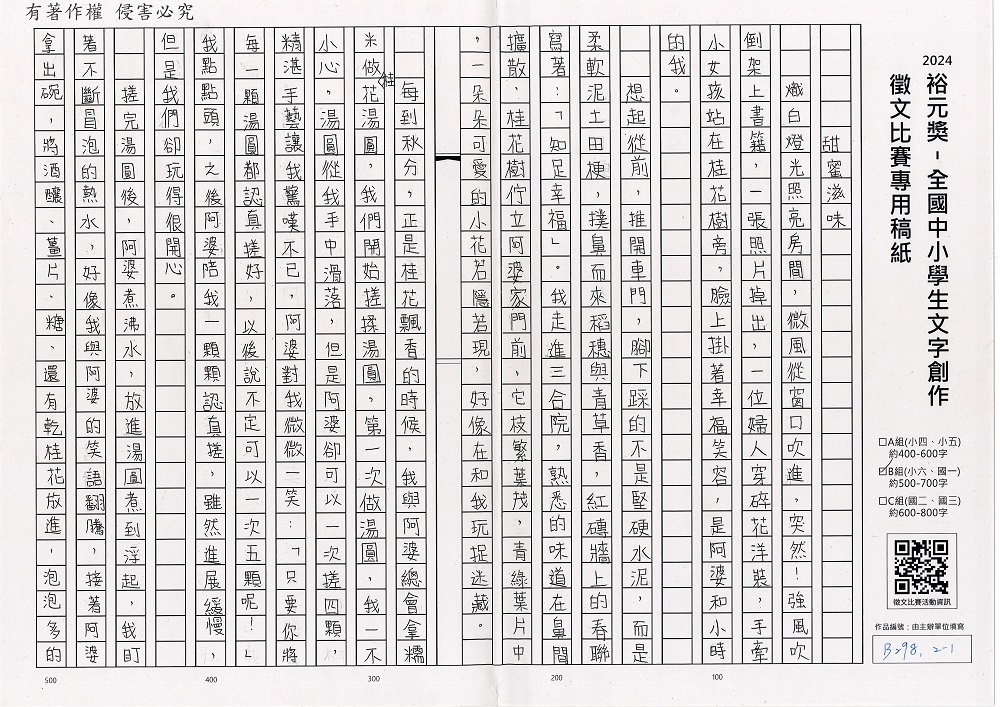 有著作權 侵害必究
2024
裕元獎-全國中小學生文字創作
徵文比賽專用稿紙
□A組(小四、小五)
約400-600字
☑B組(小六、國一)
約500-700字
□C組(國二、國三)
約600-800字
徵文比賽活動資訊
作品編號:由主辦單位填寫
B298, 2-1
甜蜜滋味
熾白燈光照亮房間,微風從窗口吹進。突然!強風吹
倒架上書籍,一張照片掉出,一位婦人穿碎花洋裝,手牽
小女孩站在桂花樹旁,臉上掛著幸福笑容,是阿婆和小時
的我。
想起從前,推開車門,腳下踩的不是堅硬水泥,而是
柔軟泥土田梗,撲鼻而來稻穗與青草香,紅磚牆上的春聯
寫著:「知足幸福」。我走進三合院,熟悉的味道在鼻間
擴散,桂花樹佇立阿婆家門前,它枝繁葉茂,青綠葉片中
,一朵朵可愛的小花若隱若現,好像在和我玩捉迷藏。
每到秋分,正是桂花飄香的時候,我與阿婆總會拿糯
米做桂花湯圓,我們開始搓揉湯圓,第一次做湯圓,我一不
小心,湯圓從我手中滑落,但是阿婆卻可以一次搓四顆,
精湛手藝讓我驚嘆不已,阿婆對我微微一笑:「只要你將
每一顆湯圓都認真搓好,以後說不定可以一次五顆呢!」
我點點頭,之後阿婆陪我一顆顆認真搓,雖然進展緩慢,
但是我們卻玩得很開心。
搓完湯圓後,阿婆煮沸水,放進湯圓煮到浮起,我盯
著不斷冒泡的熱水,好像我與阿婆的笑語翻騰,接著阿婆
拿出碗,將酒釀、薑片、糖、還有乾桂花放進,泡泡多的
100
200
300
400
500